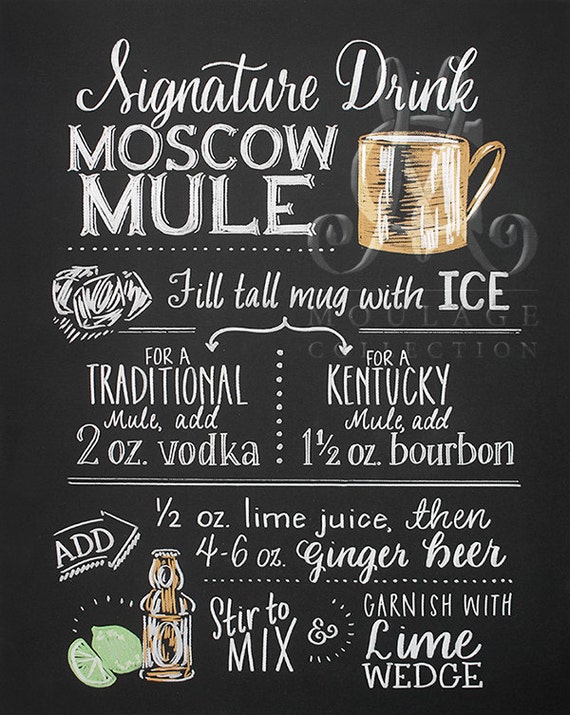 Signature Drink
MOSCOW
MULE
Fill tall mug with ICE
MOULAGE
COLLECTION
FOR A
TRADITIONAL
Mule, add
2 oz. vodka
FOR A
KENTUCKY
Mule, add
1½ oz. bourbon
ADD
½ oz. lime juice, then
4-6 oz. Ginger beer
Stir to
MIX
&
GARNISH WITH
Lime
WEDGE